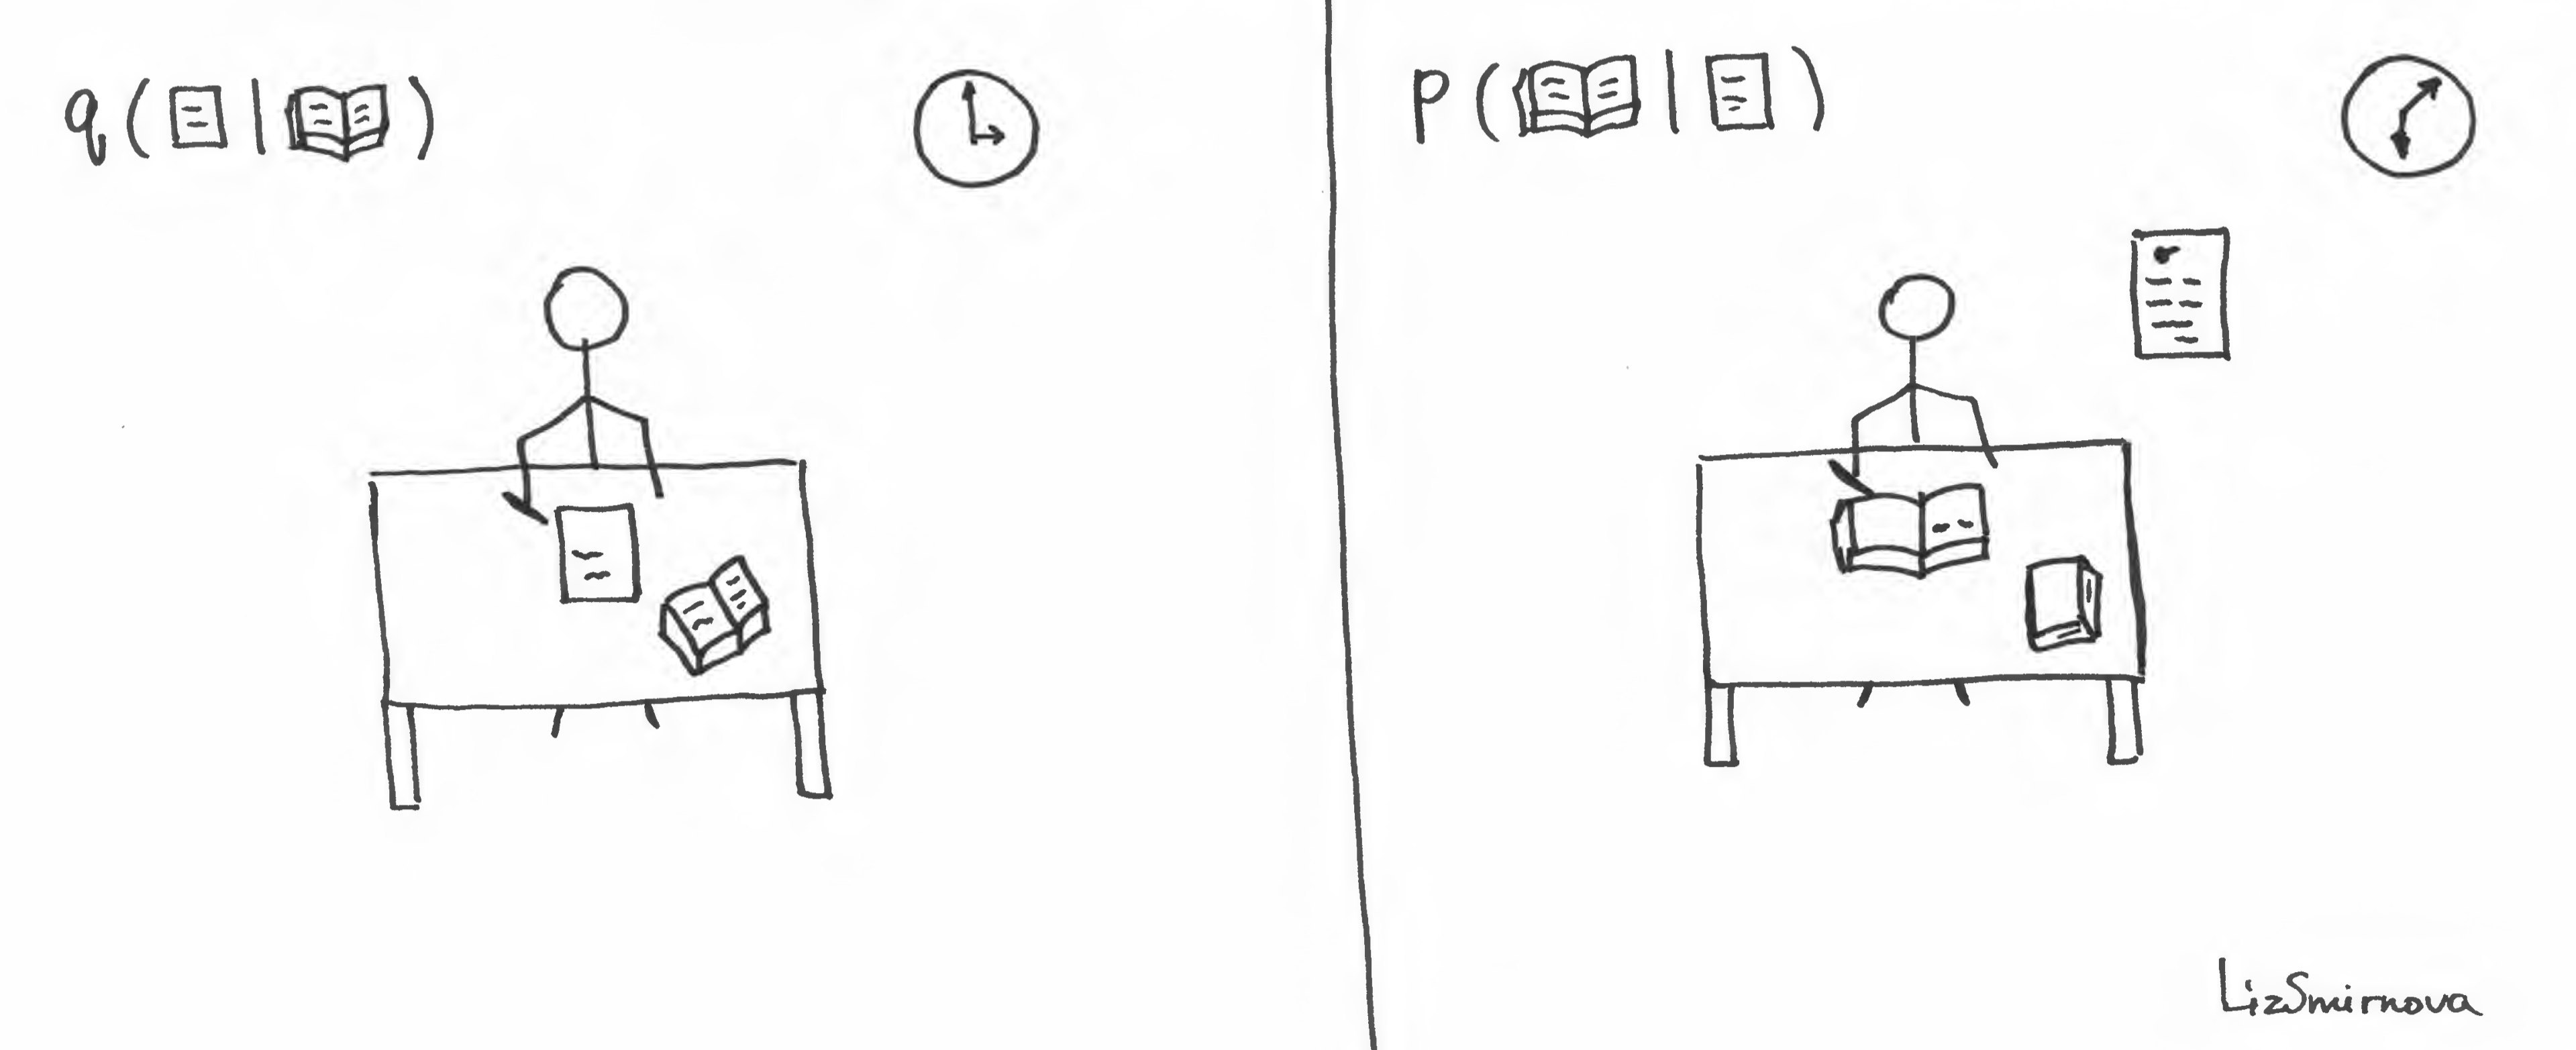 q ( | )
p ( | )
LizSmirnova